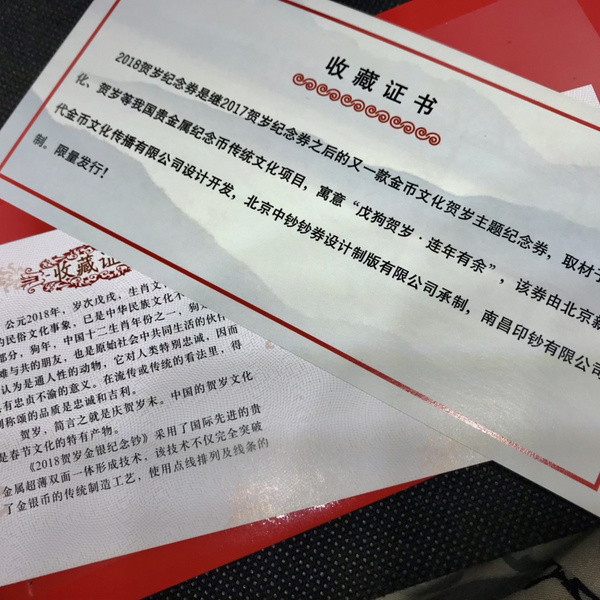 收藏证书
2018贺岁纪念券是继2017贺岁纪念券之后的又一款金币文化贺岁主题纪念券，取材于
化、贺岁等我国贵金属纪念币传统文化项目，寓意“戊狗贺岁·连年有余”，该券由北京
代金币文化传播有限公司设计开发，北京中钞钞券设计制版有限公司承制，南昌印钞有限公司
制。限量发行！
收藏证
公元2018年，岁次戊戌，生肖文
的民俗文化事象，已是中华民族文化不
部分，狗年，中国十二生肖年份之一，狗
难与共的朋友，也是原始社会中共同生活的伙伴
认为是通人性的动物，它对人类特别忠诚，因而
有忠贞不渝的意义。在流传或传统的看法里，得
到称颂的品质是忠诚和吉利。
贺岁，简言之就是庆贺岁末。中国的贺岁文化
是春节文化的特有产物。
《2018贺岁金银纪念钞》采用了国际先进的贵
金属超薄双面一体形成技术，该技术不仅完全突破
了金银币的传统制造工艺，使用点线排列及线条的